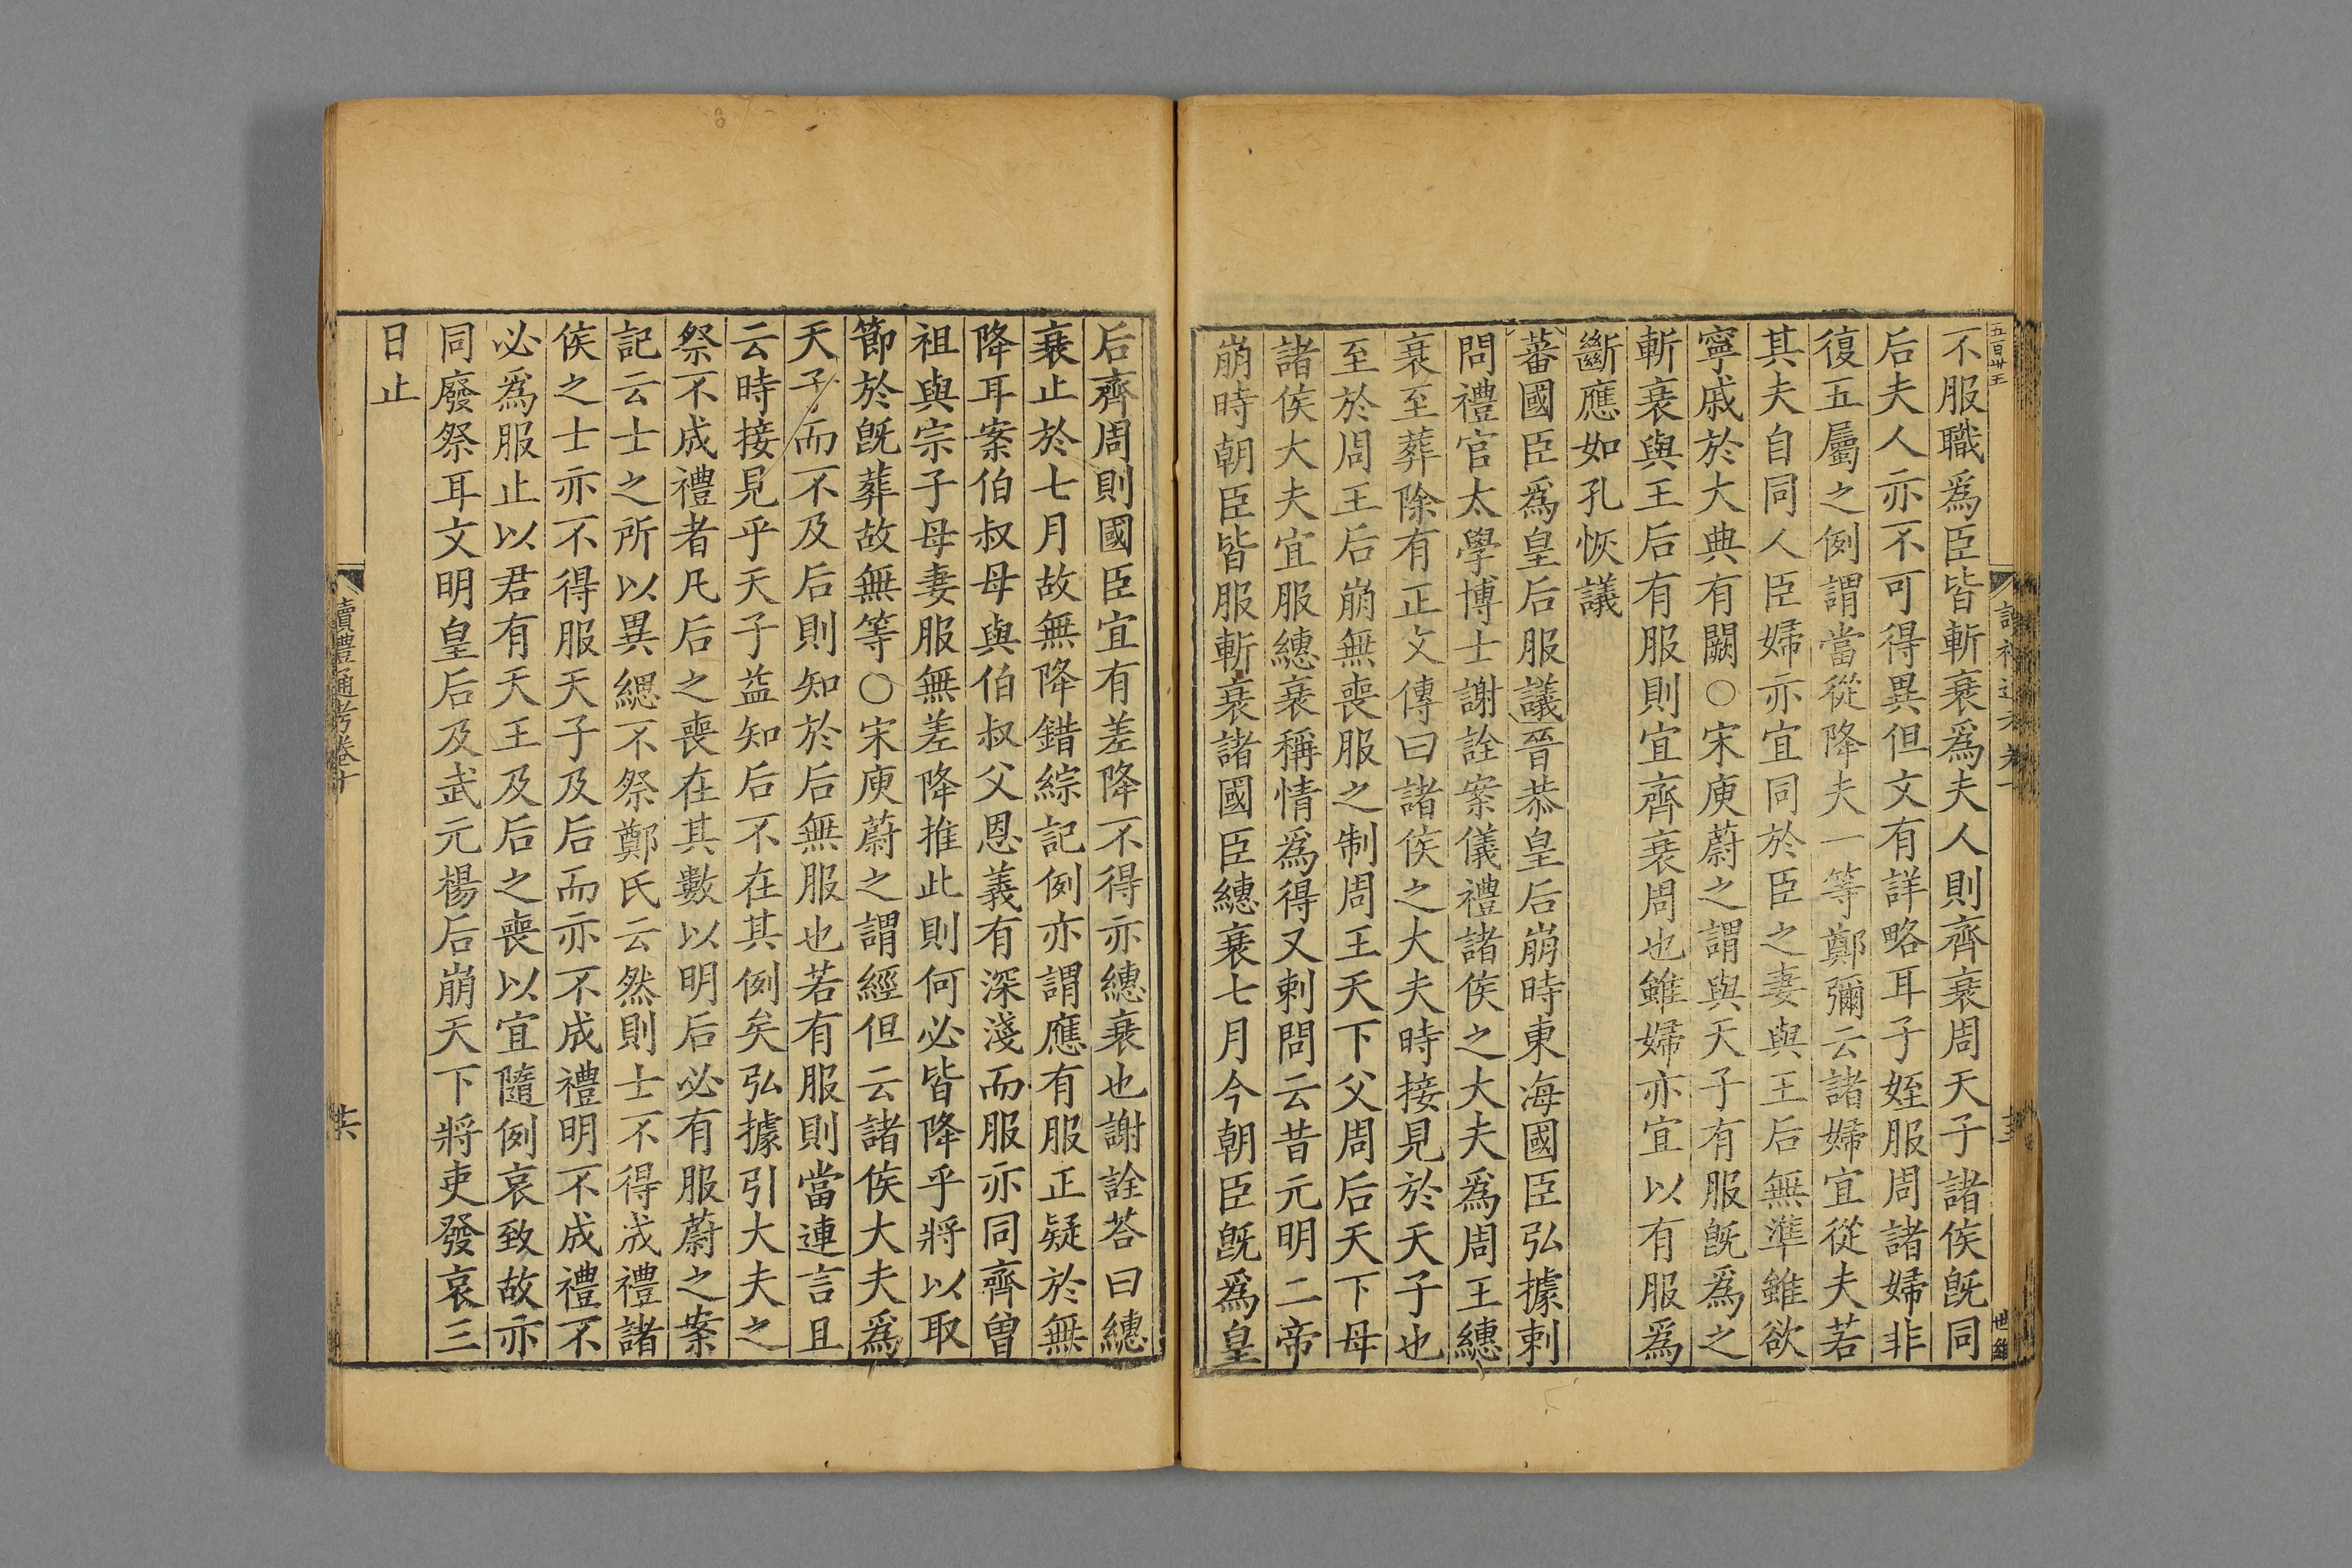 五百卅王
不服職爲臣皆斬衰爲夫人則齊衰周天子諸侯旣同
后夫人亦不可得異但文有詳略耳子姪服周諸婦非
復五屬之例謂當從降夫一等鄭彌云諸婦宜從夫若
其夫自同人臣婦亦宜同於臣之妻與王后無準雖欲
寧戚於大典有闕○宋庾蔚之謂與天子有服旣爲之
斬衰與王后有服則宜齊衰周也雖婦亦宜以有服爲
斷應如孔恢議
蕃國臣爲皇后服議晉恭皇后崩時東海國臣弘據刺
問禮官太學博士謝詮案儀禮諸侯之大夫爲周王繐
衰至葬除有正文傳曰諸侯之大夫時接見於天子也
至於周王后崩無喪服之制周王天下父周后天下母
諸侯大夫宜服繐衰稱情爲得又刺問云昔元明二帝
崩時朝臣皆服斬衰諸國臣繐衰七月今朝臣旣爲皇
后齊周則國臣宜有差降不得亦繐衰也謝詮荅曰繐
衰止於七月故無降錯綜記例亦謂應有服正疑於無
降耳案伯叔母與伯叔父恩義有深淺而服亦同齊曾
祖與宗子母妻服無差降推此則何必皆降乎將以取
節於旣葬故無等○宋庾蔚之謂經但云諸侯大夫爲
天子而不及后則知於后無服也若有服則當連言且
云時接見乎天子益知后不在其例矣弘據引大夫之
祭不成禮者凡后之喪在其數以明后必有服蔚之案
記云士之所以異緦不祭鄭氏云然則士不得成禮諸
侯之士亦不得服天子及后而亦不成禮明不成禮不
必爲服止以君有天王及后之喪以宜隨例哀致故亦
同廢祭耳文明皇后及武元楊后崩天下將吏發哀三
日止
讀禮通考卷十